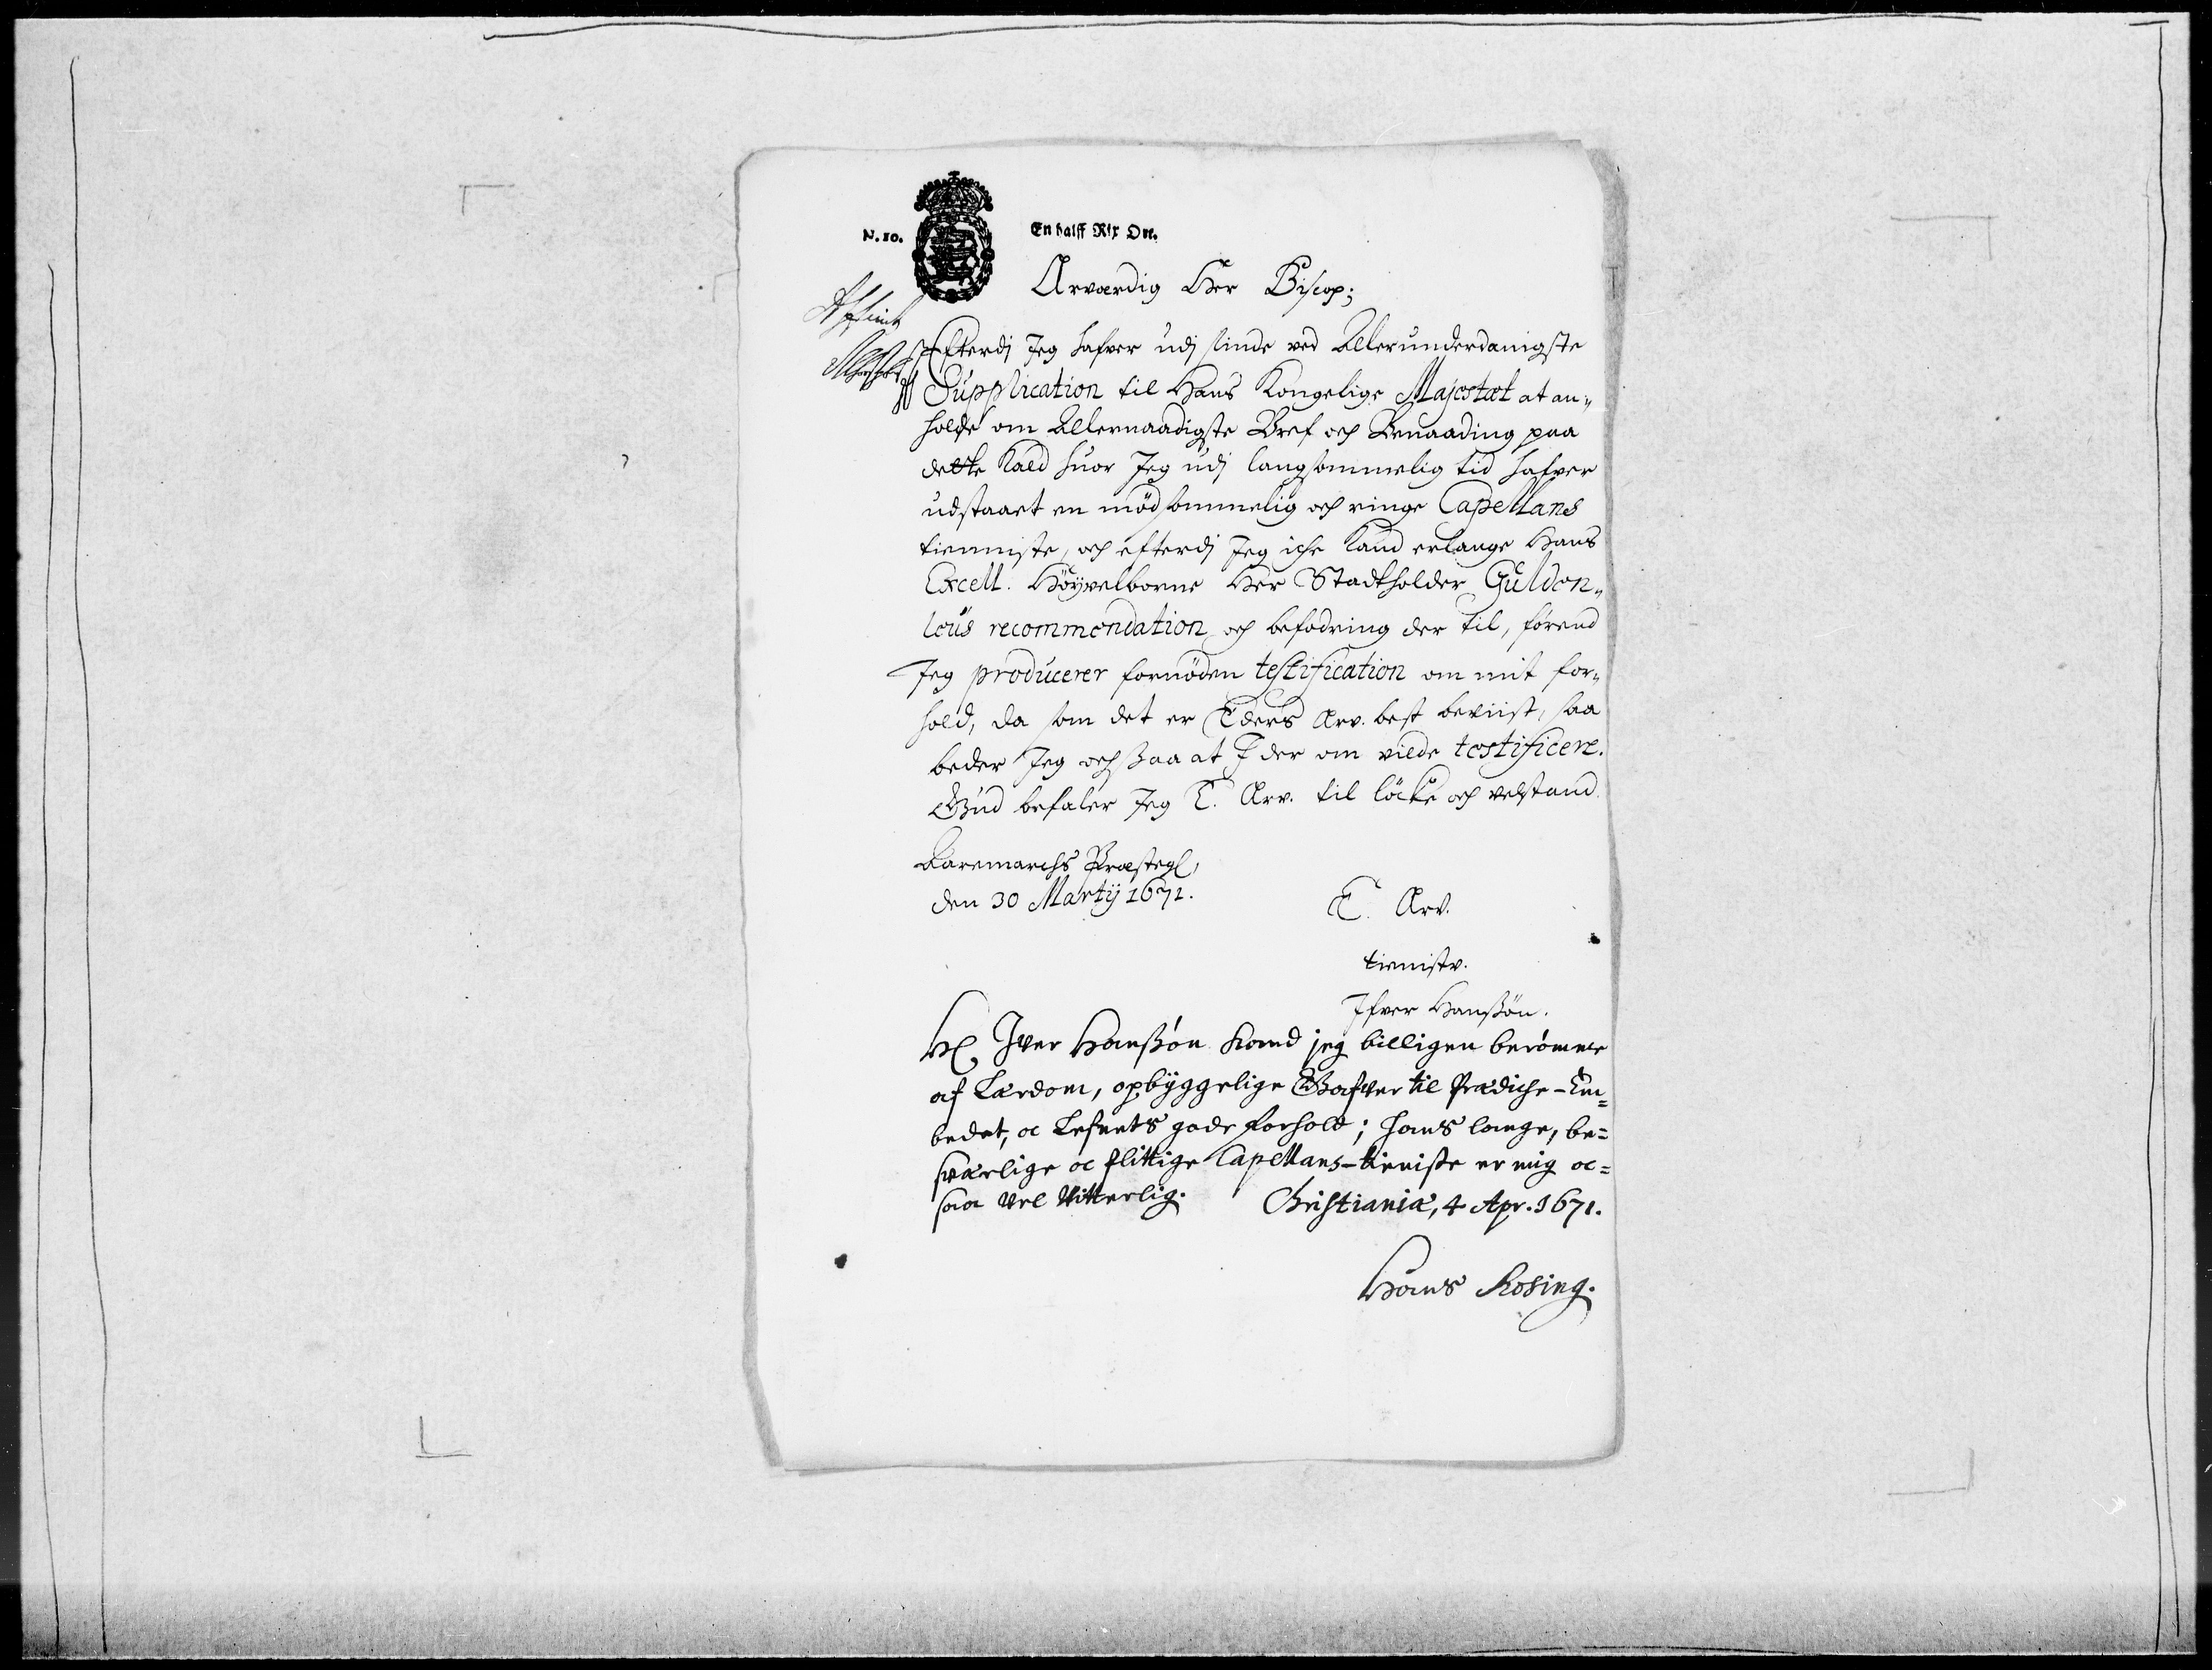 N. 10. En halff Rix Ort.
Ærværdig Her Biscop;
Efterdj Jeg hafver udj sinde ved Allerunderdanigste
Supplication til Hans Kongelige Majestæt at an„
holde om Allernaadigste Bref och Benaading paa
dette Kald huor Jeg udj langsommelig tid hafver
udstaaet en mödsommelig och ringe Capellans
tienniste, och efterdj Jeg iche kand erlange Hans
Excell. Höyvelborne Her Stadtholder Gulden„
leus recommendation och befodring der til, förend
Jeg producerer fornöden testification om mit for„
hold, da som det er Eders Ærv. best beviist, saa
beder Jeg ochsaa at I der om vilde testificere.
Gud befaler Jeg E. Ærv. til löcke och velstand.
Aaremarchs Præstegl,
den 30 Martij 1671.
E. Ærv.
tieniste.
Ifver Hanssön.
Hr. Iver Hanssön kand jeg billigen berömme
af Lærdom, opbyggelige Gafver til Prædiche-Em=
bedet, oc Lefnets gode forhold; hans lange, be=
sværlige oc flittige Capellans-tieniste er mig oc=
saa vel vitterlig. Christianiæ, 4 Apr. 1671.
Hans Rosing.